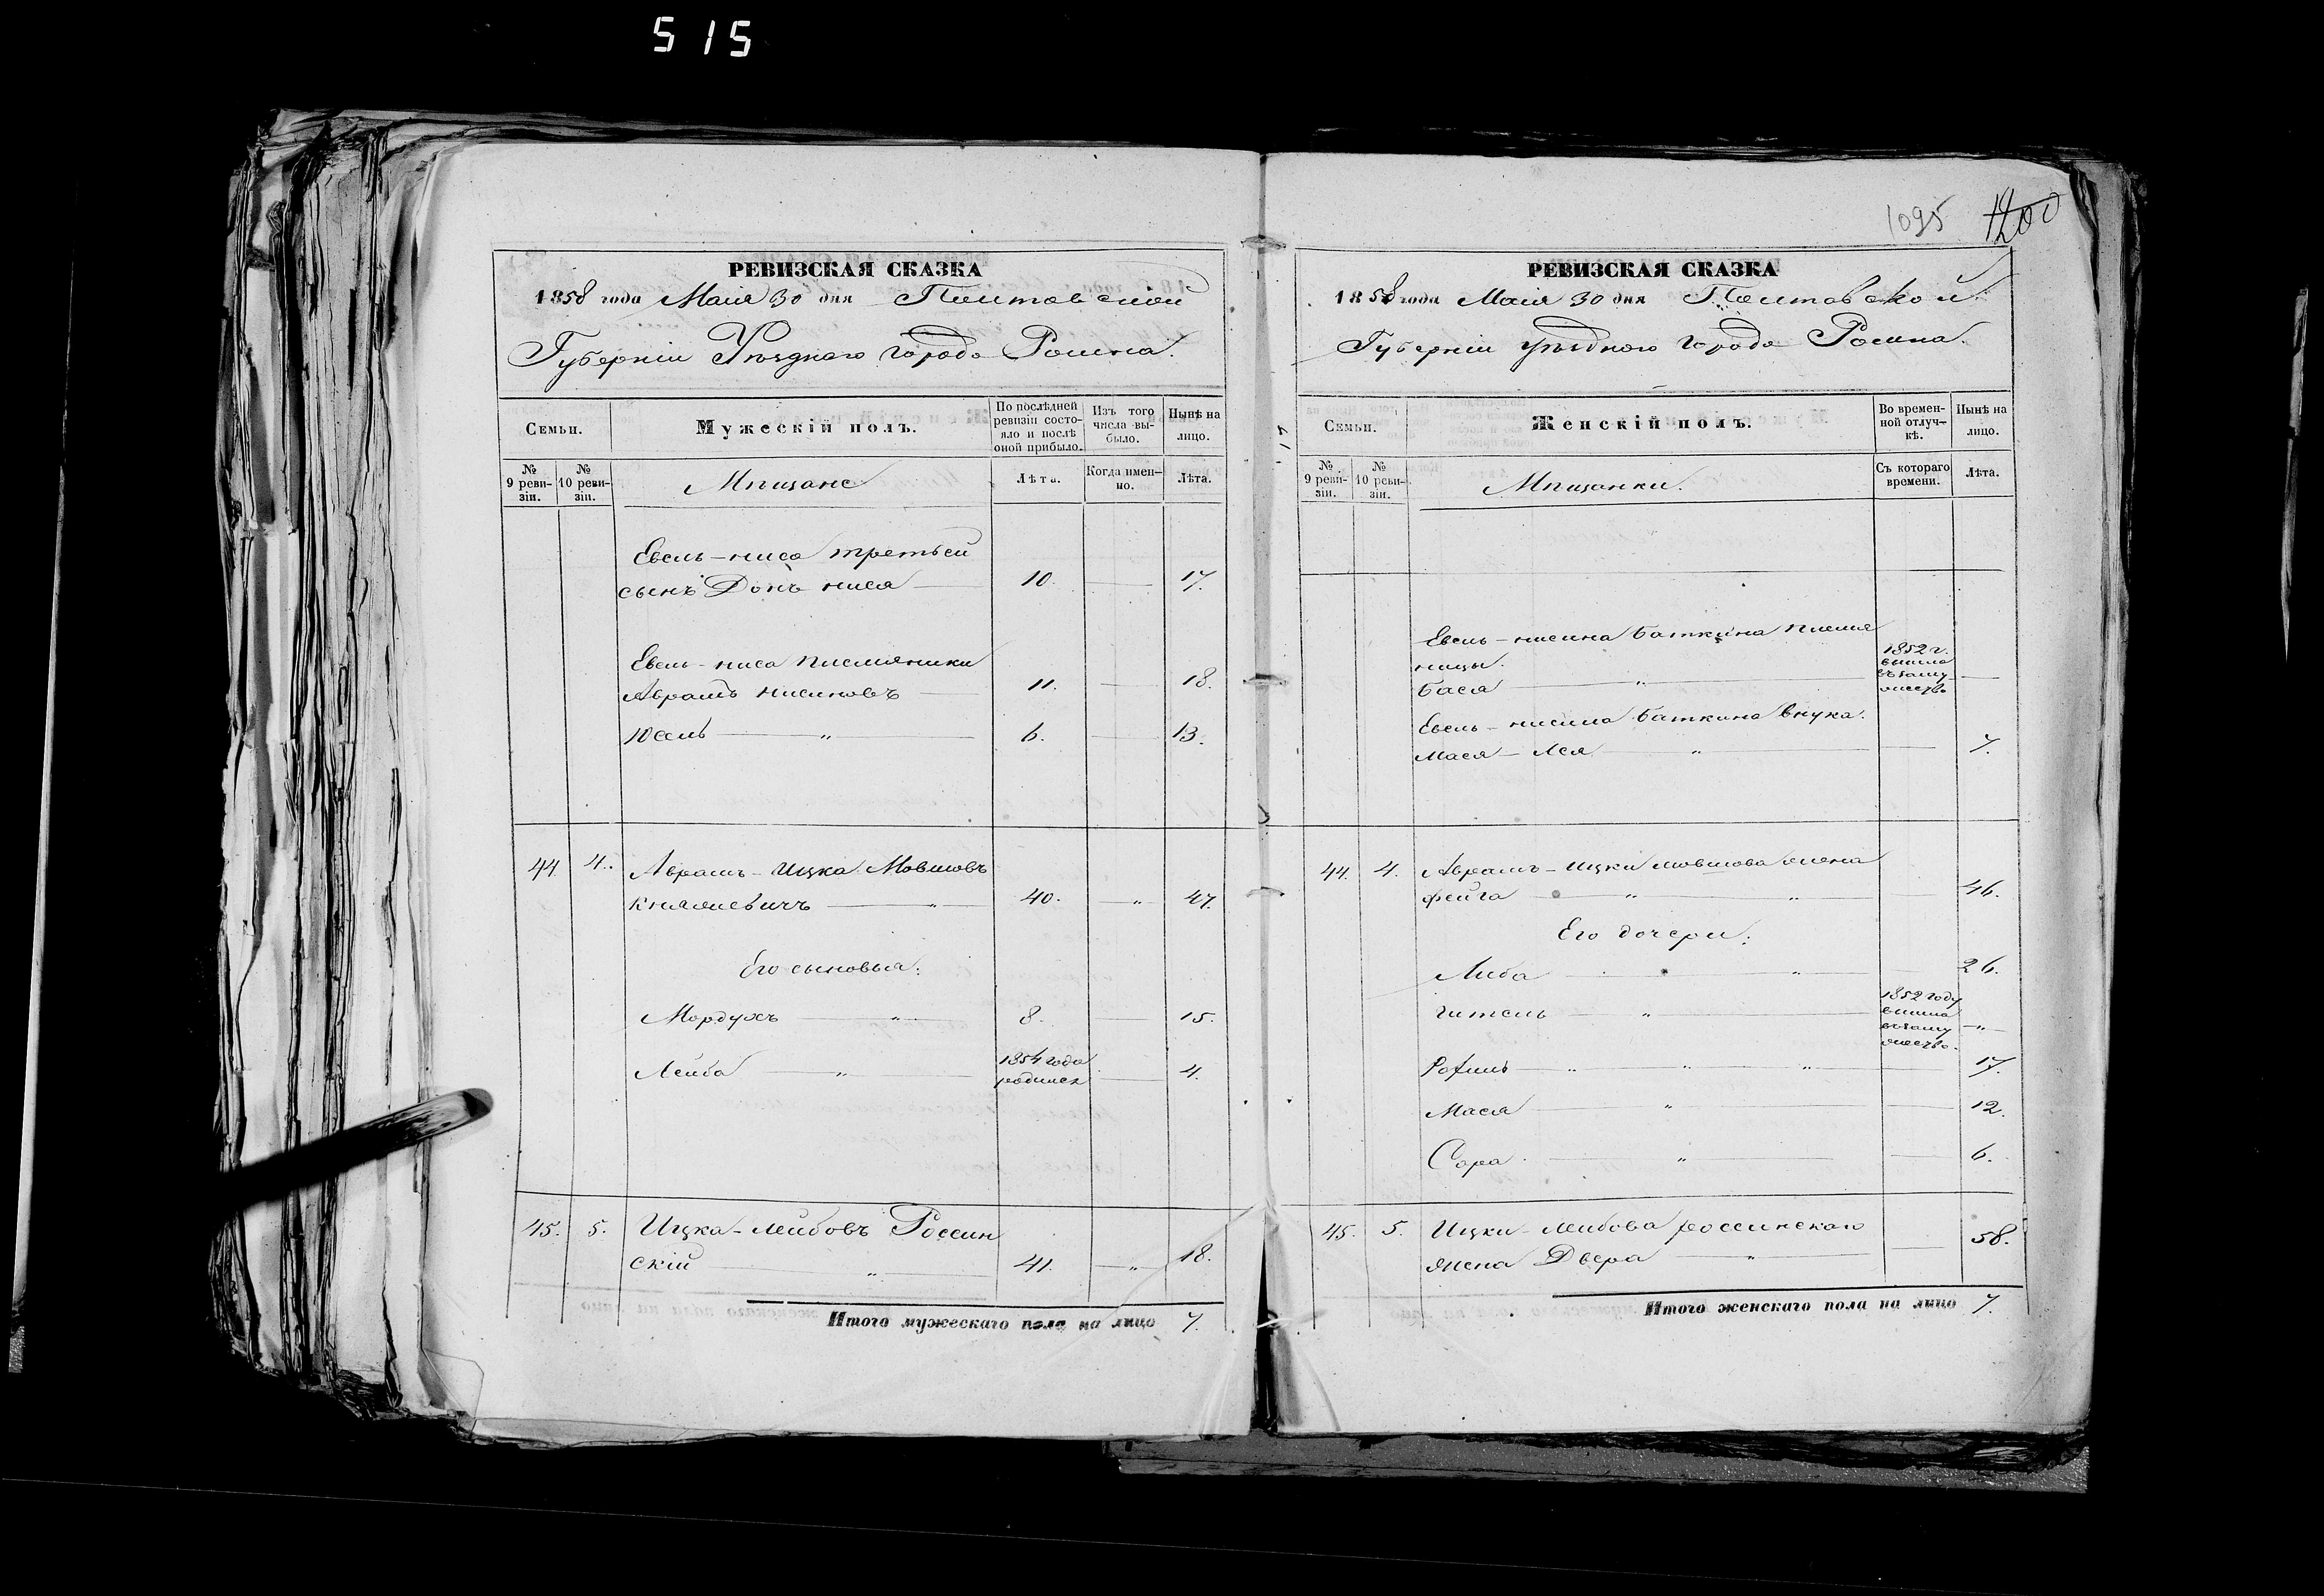 515
1095 1200
РЕВИЗСКАЯ СКАЗКА
1858 года Маія 30 дня Полтавской
Губерніи Уѣзднаго города Ромна.
Семьи.
Мужескій полъ.
По послѣдней ревизіи состояло и послѣ оной прибыло.
Изъ того числа выбыло.
Нынѣ на лицо.
№ 9 ревизіи.
№ 10 ревизіи.
Мѣщане
Лѣта.
Когда именно.
Лѣта.
Евель-ниса третьей
сынъ Донъ ниса 10. 17.
Евель-ниса племяники
Аврамъ нисиновъ 11. 18.
Юсель " 6. 13.
44 4. Аврамъ-Ицка Мовшовъ
" 40. " 47.
Его сыновья:
Мордухъ " 8. 15.
Лейба " 1854 года родился 4.
45. 5. Ицка-Лейбовъ Россин
скій " 41. " 18.
Итого мужескаго пола на лицо 7.
РЕВИЗСКАЯ СКАЗКА
1858 года Маія 30 дня Полтавской
Губерніи уѣзднаго города Ромна.
Семьи.
Женскій полъ.
Во временной отлучкѣ.
Нынѣ на лицо.
№ 9 ревизіи.
№ 10 ревизіи.
Мѣщанки.
Съ котораго времени.
Лѣта.
Евель-нисина Баткина племя
ницы.
Бася " 1852 г. вышла въ замужество
Евель-нисина Баткина внука.
Мася-Лея " 7.
44. 4. Аврамъ-Ицки мовшова жена
фейга " " 46.
Его дочери:
Либа " 26.
Гитель " 1852 году вышла въ замужество. "
Рохиль " " " 17.
Мася " 12.
Сора " 6.
45. 5. Ицки-Лейбова россинскаго
жена Двера " 58.
Итого женскаго пола на лицо 7.